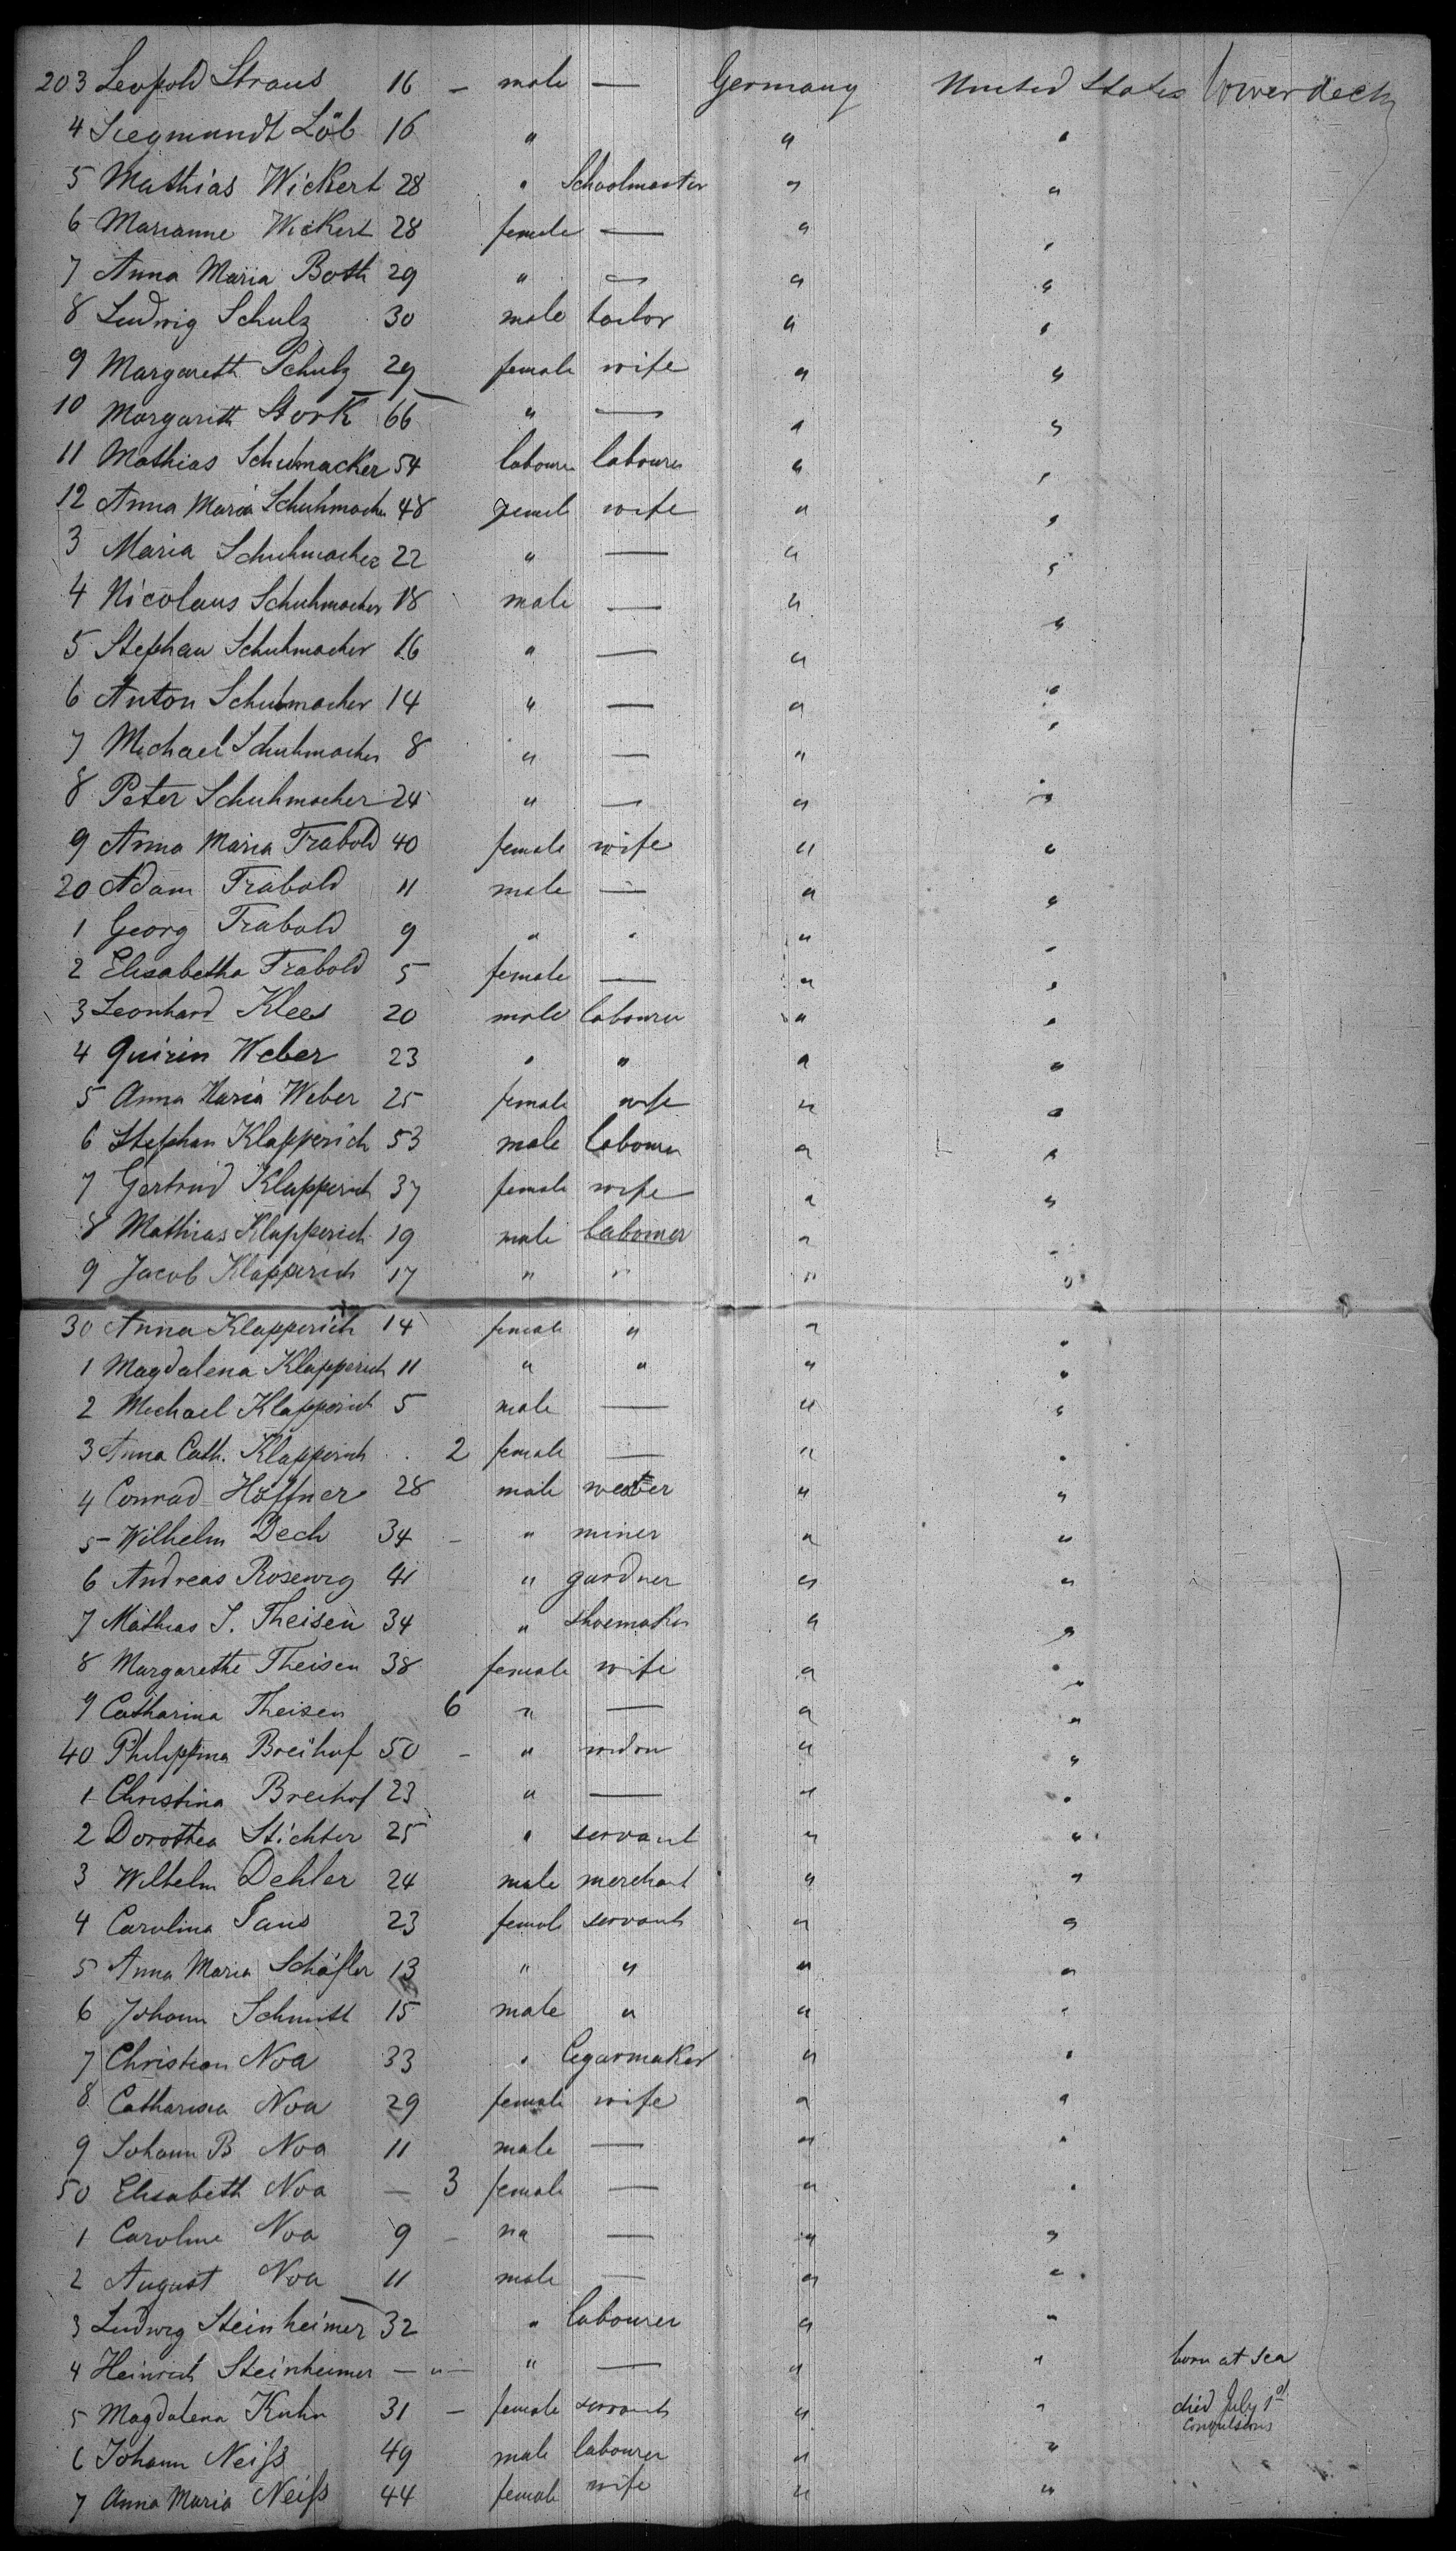 203 Leopold Straus 16 - male — Germany United States lower deck
4 Siegmundt Löb 16 " " "
5 Mathias Wickert 28 " Schoolmaster " "
6 Marianne Wickert 28 female — " "
7 Anna Maria Both 29 " — " "
8 Ludwig Schulz 30 male tailor " "
9 Margareth Schulz 29 female wife " "
10 Margarith Stork 66 " — " "
11 Mathias Schumacker 54 labourer labourer " "
12 Anna Maria Schuhmacher 48 female wife " "
3 Maria Schuhmacher 22 " — " "
4 Nicolaus Schuhmacher 18 male — " "
5 Stephan Schuhmacher 16 " — " "
6 Anton Schuhmacher 14 " — " "
7 Michael Schuhmacher 8 " — " "
8 Peter Schuhmacher 24 " — " "
9 Anna Maria Trabold 40 female wife " "
20 Adam Trabold 11 male — " "
1 Georg Trabold 9 " " " "
2 Elisabetha Trabold 5 female — " "
3 Leonhard Klees 20 male labourer " "
4 Quirin Weber 23 " " " "
5 Anna Maria Weber 25 female wife " "
6 Stephan Klapperich 53 male labourer " "
7 Gertrud Klapperich 37 female wife " "
8 Mathias Klapperich 19 male labourer " "
9 Jacob Klapperich 17 " " " "
30 Anna Klapperich 14 female " " "
1 Magdalena Klapperich 11 " " " "
2 Michael Klapperich 5 male — " "
3 Anna Cath. Klapperich 2 female — " "
4 Conrad Höffner 28 male " "
5 Wilhelm Dech 34 - " miner " "
6 Andreas Rosewig 41 " gardner " "
7 Mathias J. Theisen 34 " shoemaker " "
8 Margarethe Theisen 38 female wife " "
9 Catharina Theisen 6 " — " "
40 Philippina Breihof 50 - " widow " "
1 Christina Breihof 23 " — " "
2 Dorothea Stichter 25 " servant " "
3 Wilhelm Dehler 24 male merchant " "
4 Carolina Sans 23 female servant " "
5 Anna Maria Schäfler 13 " " " "
6 Johann Schmitt 15 male " " "
7 Christian Noa 33 " Cegarmaker " "
8 Catharina Noa 29 female wife " "
9 Johann B Noa 11 male — " "
50 Elisabeth Noa — 3 female — " "
1 Caroline Noa 9 - — " "
2 August Noa 11 male — " "
3 Ludwig Steinheimer 32 " labourer " "
4 Heinrich Steinheimer — " — " — " " born at sea
5 Magdalena Kuhn 31 - female servant " " died July 1st
Convulsions
6 Johann Neiſs 49 male labourer " "
7 Anna Maria Neiſs 44 female wife " "